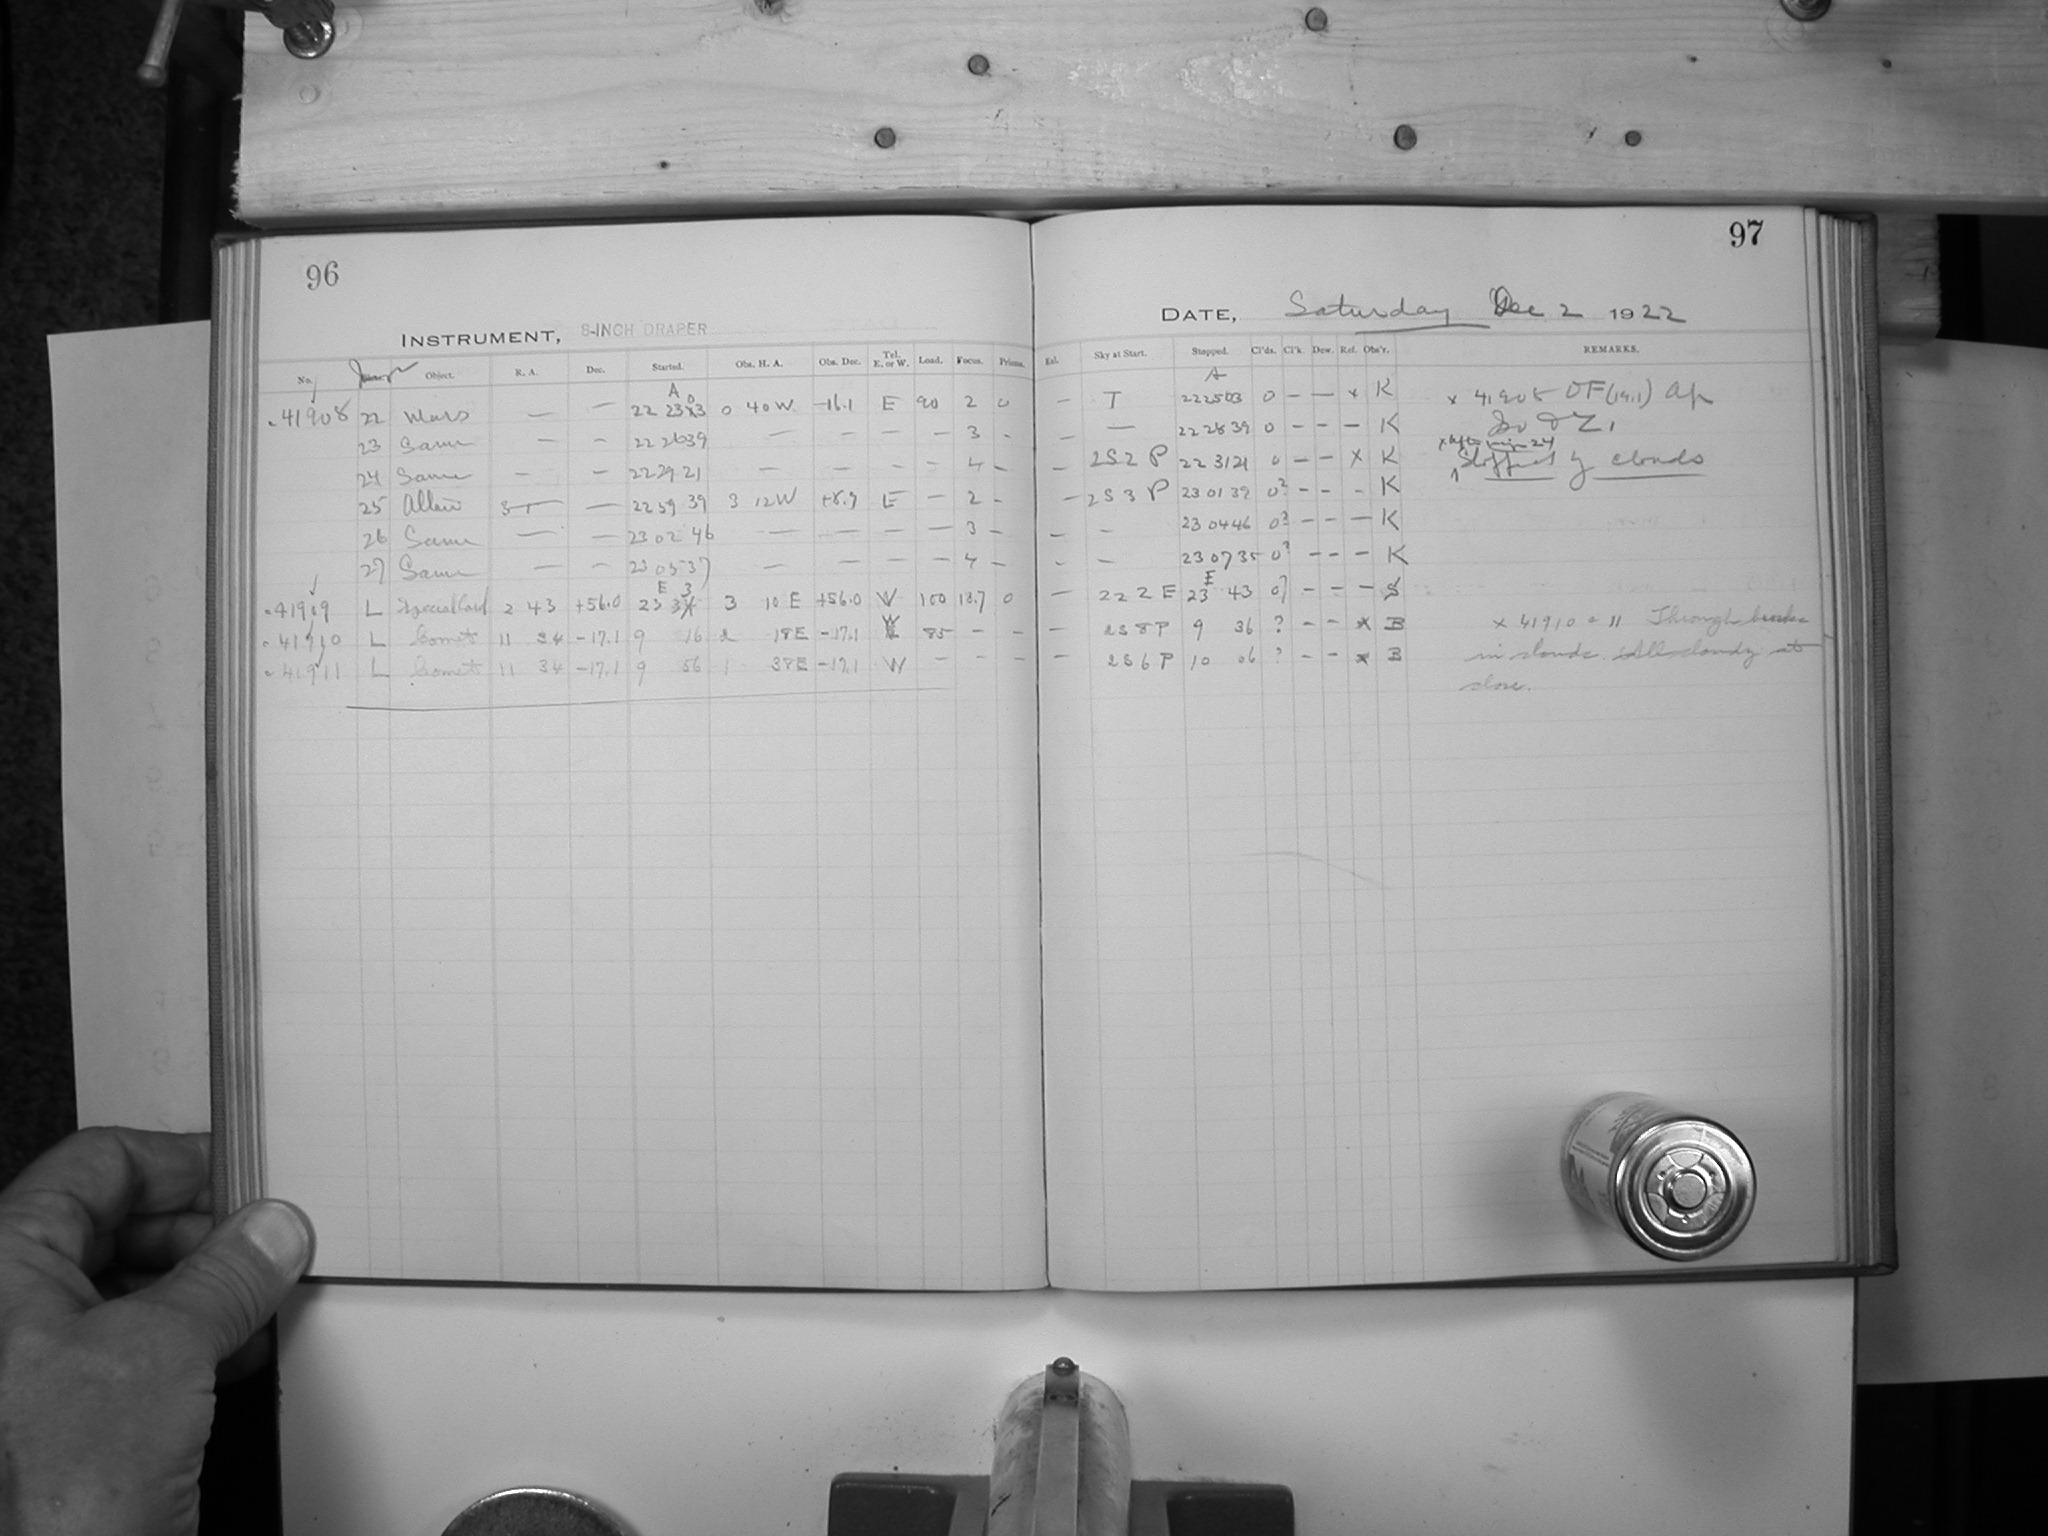 96
INSTRUMENT, 8-INCH DRAPER
No. Object. R. A. Dec. Started. Obs. H. A. Obs. Dec. Tel. E. or W. Load. Focus. Prisms.
A
41908 22 Mars — — 22 23 0 40 W -16.1 E 90 2 0
23 Same — — 22 26 39 — — — — 3 -
24 Same — — 22 29 21 — — — — 4 -
25 — 22 59 39 3 12 W +8.9 E — 2 -
26 Same — — 23 02 46 — — — — 3 -
27 Same — — 23 05 37 — — — — 4 -
E 3
41909 L 2 43 +56.0 23 3 10 E +56.0 W 100 18.7 0
41910 L Comet 11 34 -17.1 9 16 2 18 E -17.1 W 85 - -
41911 L Comet 11 34 -17.1 9 56 1 38 E -17.1 W - - -
97
DATE, Saturday Dec 2 1922
Sky at Start. Stopped. Cl'ds. Cl'k. Dew. Ref. Obs'r. REMARKS.
A
— T 22 25 03 0 - — x K x 41908
— — 22 28 39 0 - - - K
— 2S2 P 22 31 21 0 - - x K Stopped by clouds
— 2S3 P 23 01 39 0? - - - K
— - 23 04 46 0? - - — K
- - 23 07 35 0? - - - K
E
— 222 E 23 43 0? - - - S
— 2S8 P 9 36 ? - - x B x 41910 & 11 Through breaks
— 2S6 P 10 06 ? - - x B in clouds. All cloudy at
close.